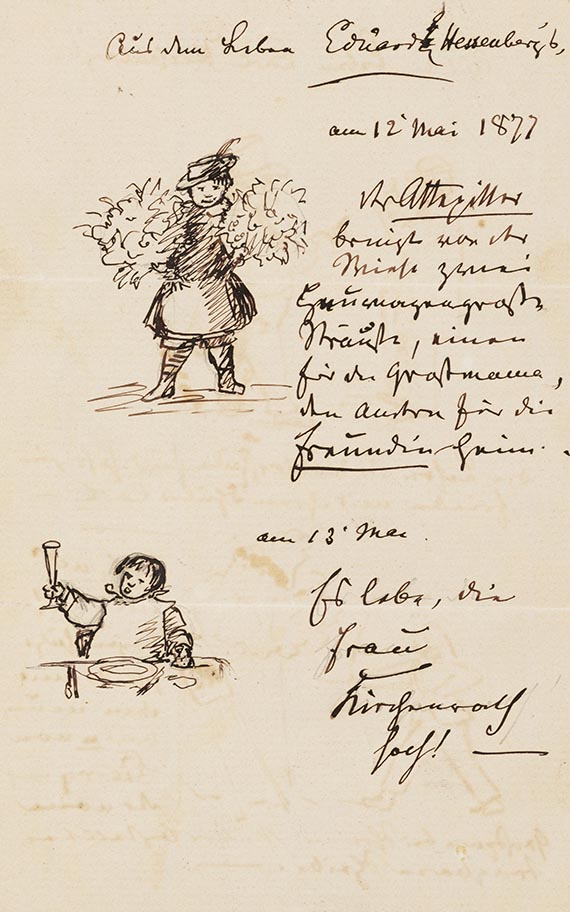 Aus dem Leben Eduard Hessenberg's,
am 12 Mai 1877
der Attepitter
bringt von der
Wiese zwei
heuwagengroße
Sträuße, einen
für die Großmama,
den Andren für die
Freundin heim.
am 13 Mai.
Es lebe, die
Frau
Kirchenrath
hoch!